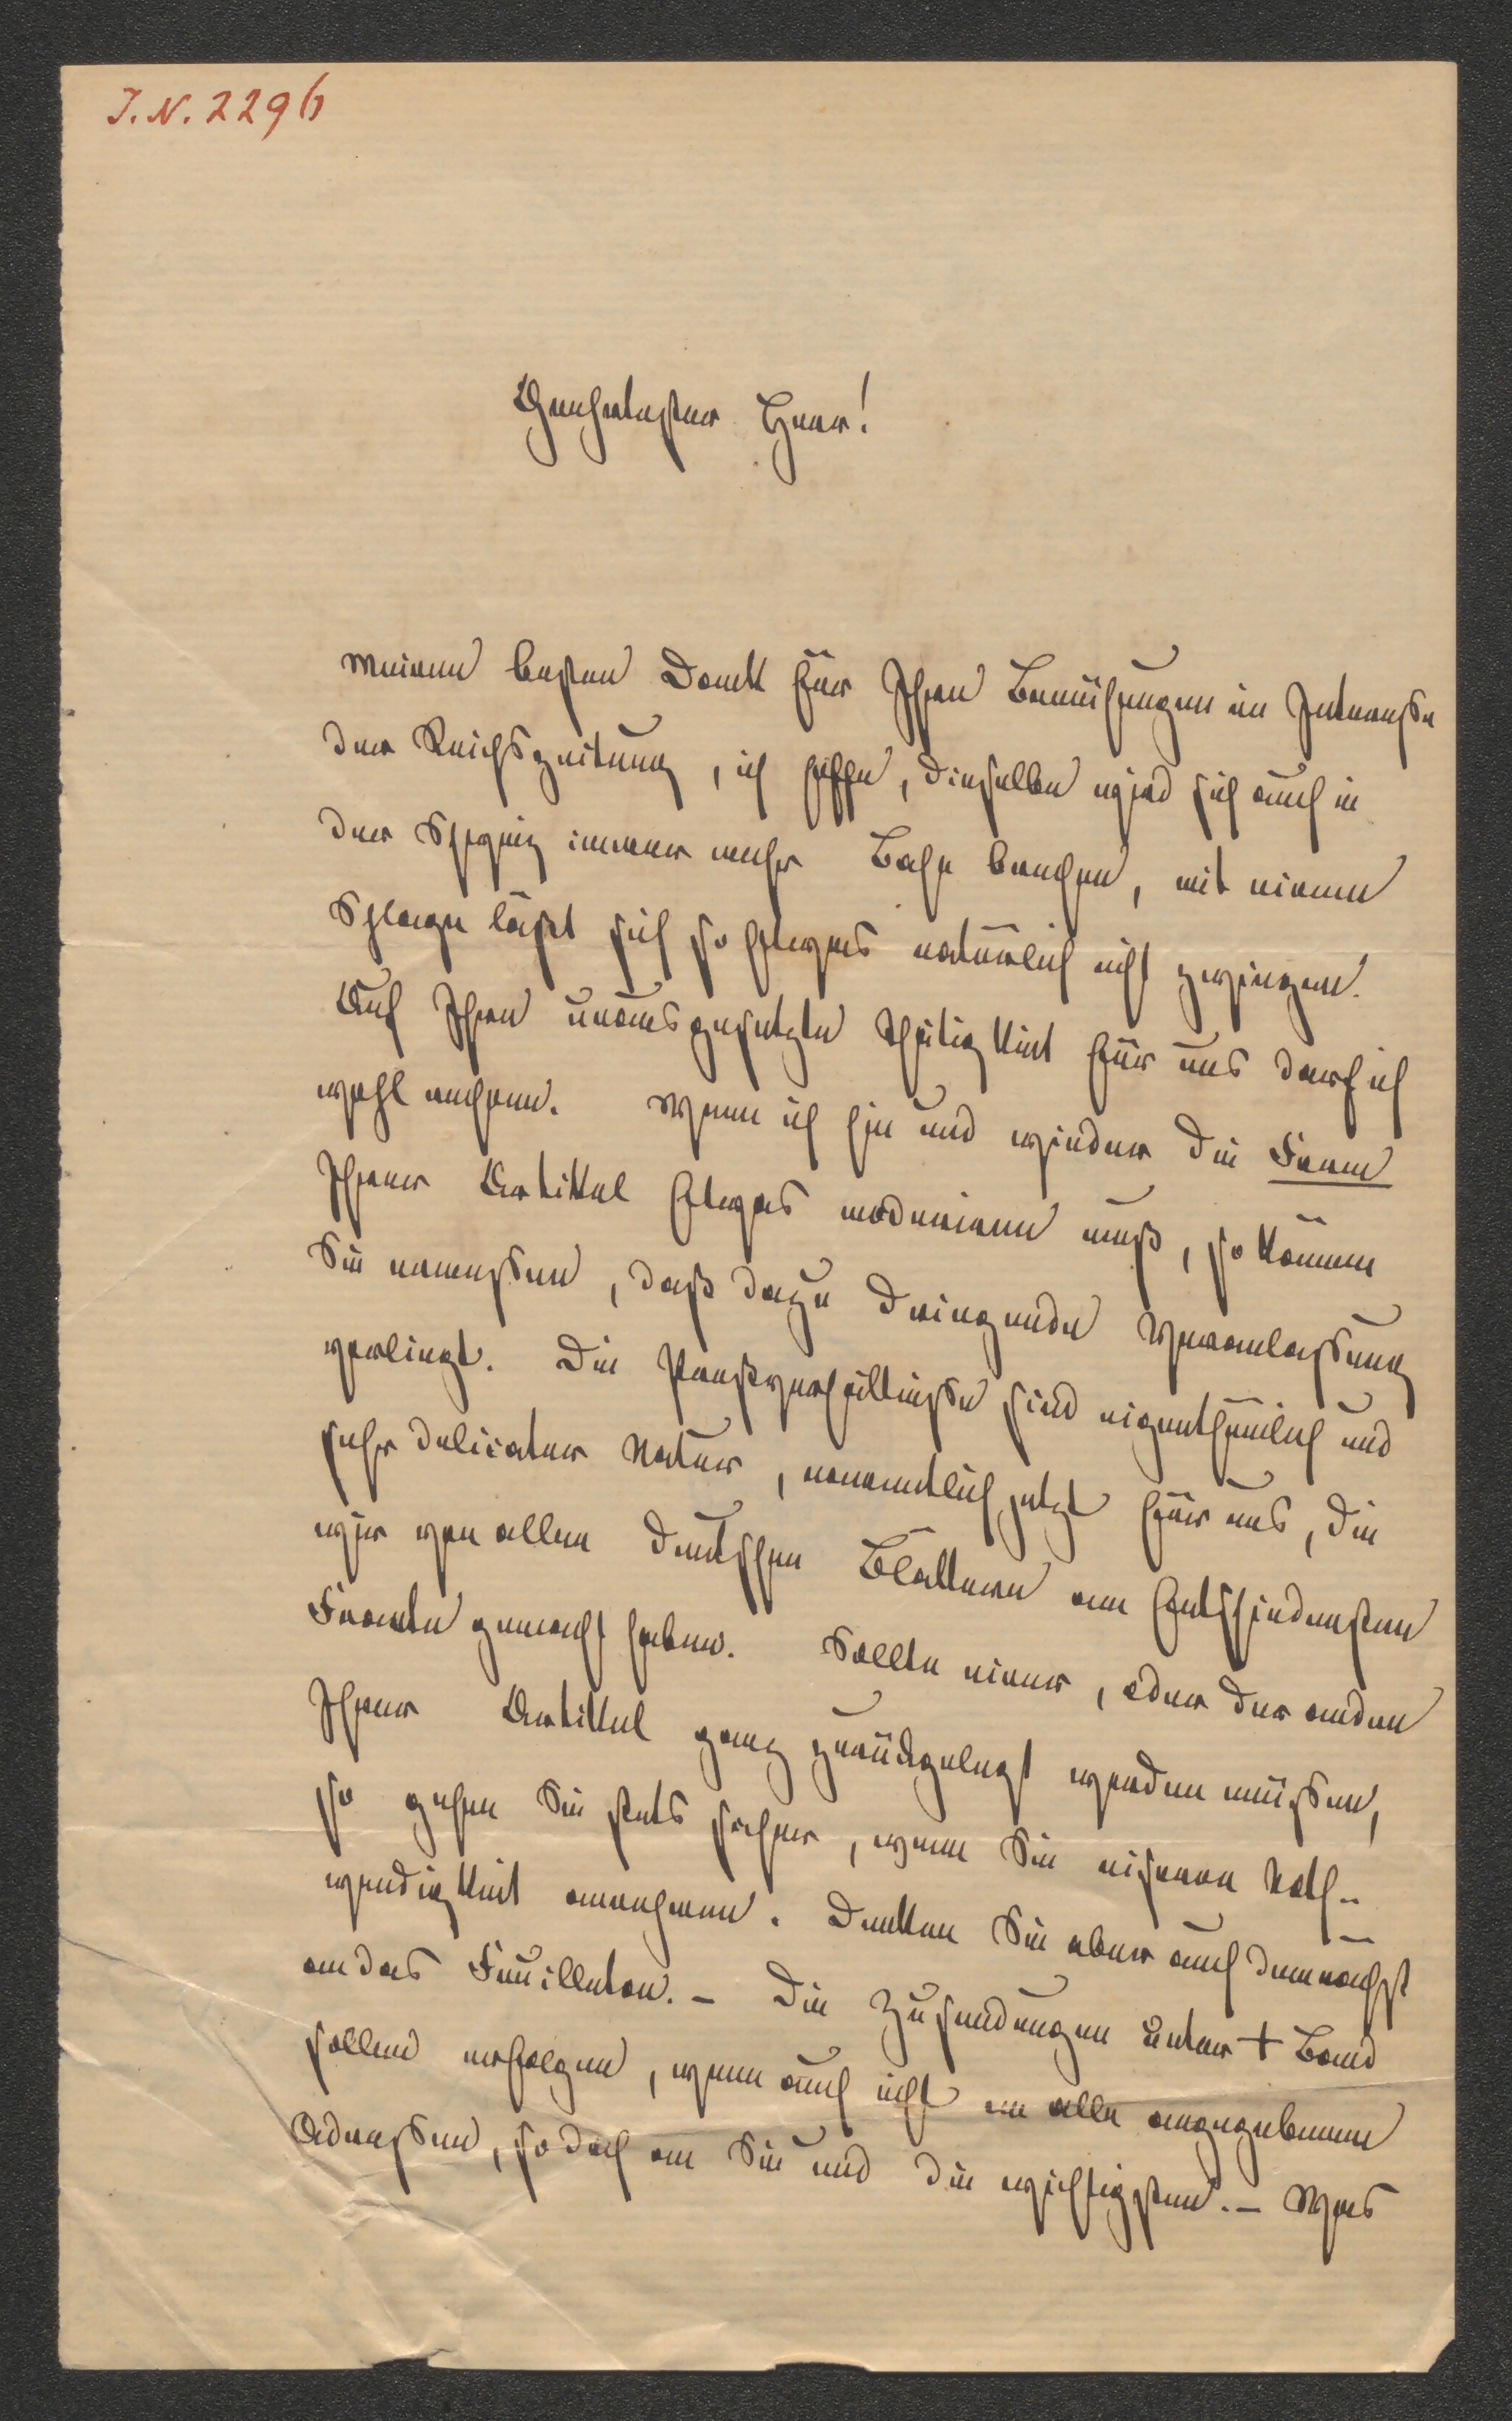 J.N. 2296
Geehrtester Herr!
meinen besten Dank für Ihre Bemühungen im Interesse
der Reichszeitung, ich hoffe, dieselbe wird sich auch in
der Schweiz immer mehr Bahn brechen, mit einem
Schlage läßt sich so etwas natürlich nicht zwingen.
Auf Ihre unausgesetzte Thätigkeit für uns darf ich
wohl rechnen. Wenn ich hin und wieder die Form
Ihrer Artikel Etwas moderiren muß, so können
Sie ermessen, daß dazu dringende Veranlassung
vorliegt. Die Preßverhältnisse sind eigenthümlich und
sehr delicater Natur, namentlich jetzt für uns, die
wir von allen deutschen Blättern am Entschiedensten
Fronte gemacht haben. Sollte einer, oder der andere
Ihrer Artikel ganz zurückgelegt werden müssen,
so gehen Sie stets sicher, wenn Sie eiserne Noth-
wendigkeit annehmen. Denken Sie aber auch demnächst
an das Feuilleton. – Die Zusendungen unter + Band
sollen erfolgen, wenn auch nicht an alle angegebenen
Adressen, so doch an Sie und die wichtigsten. – Was